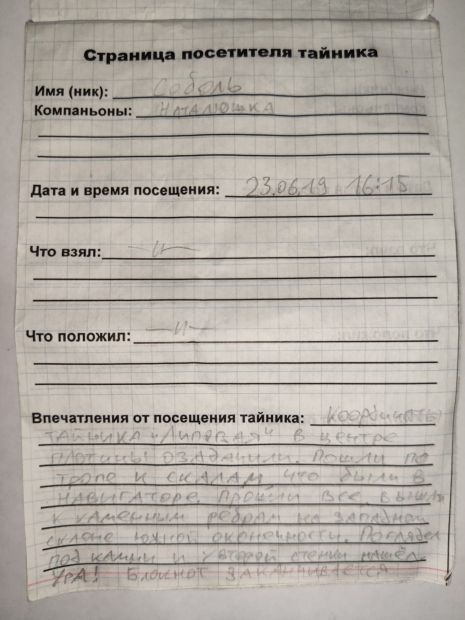 Страница посетителя тайника
Имя (ник): Соболь
Компаньоны: Наталюшка
Дата и время посещения: 23.06.19 16:15
Что взял: —"—
Что положил: —"—
Впечатления от посещения тайника: Координаты
тайника "Липовая" в центре
плотины озадачили. Пошли по
тропе к скалам, что были в
навигаторе. Прошли все, вышли
к каменным ребрам на западном
склоне южной оконечности. Поглядел
под камни и у второй стенки нашёл.
Ура! Блокнот заканчивается